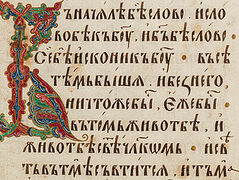 Въначалѣбѣслово · исло
вобѣкъбꙋ · ибъбѣслово ·
Себѣисконикъбꙋ · въсѣ
тѣмьбышѧ · ибезнего
ничтожебы · ежебы
вътомьживотьбѣ · и
животьбѣсвѣчлкѡмь · исвѣ
тьвътмѣсвѣтитсѧ · итьм